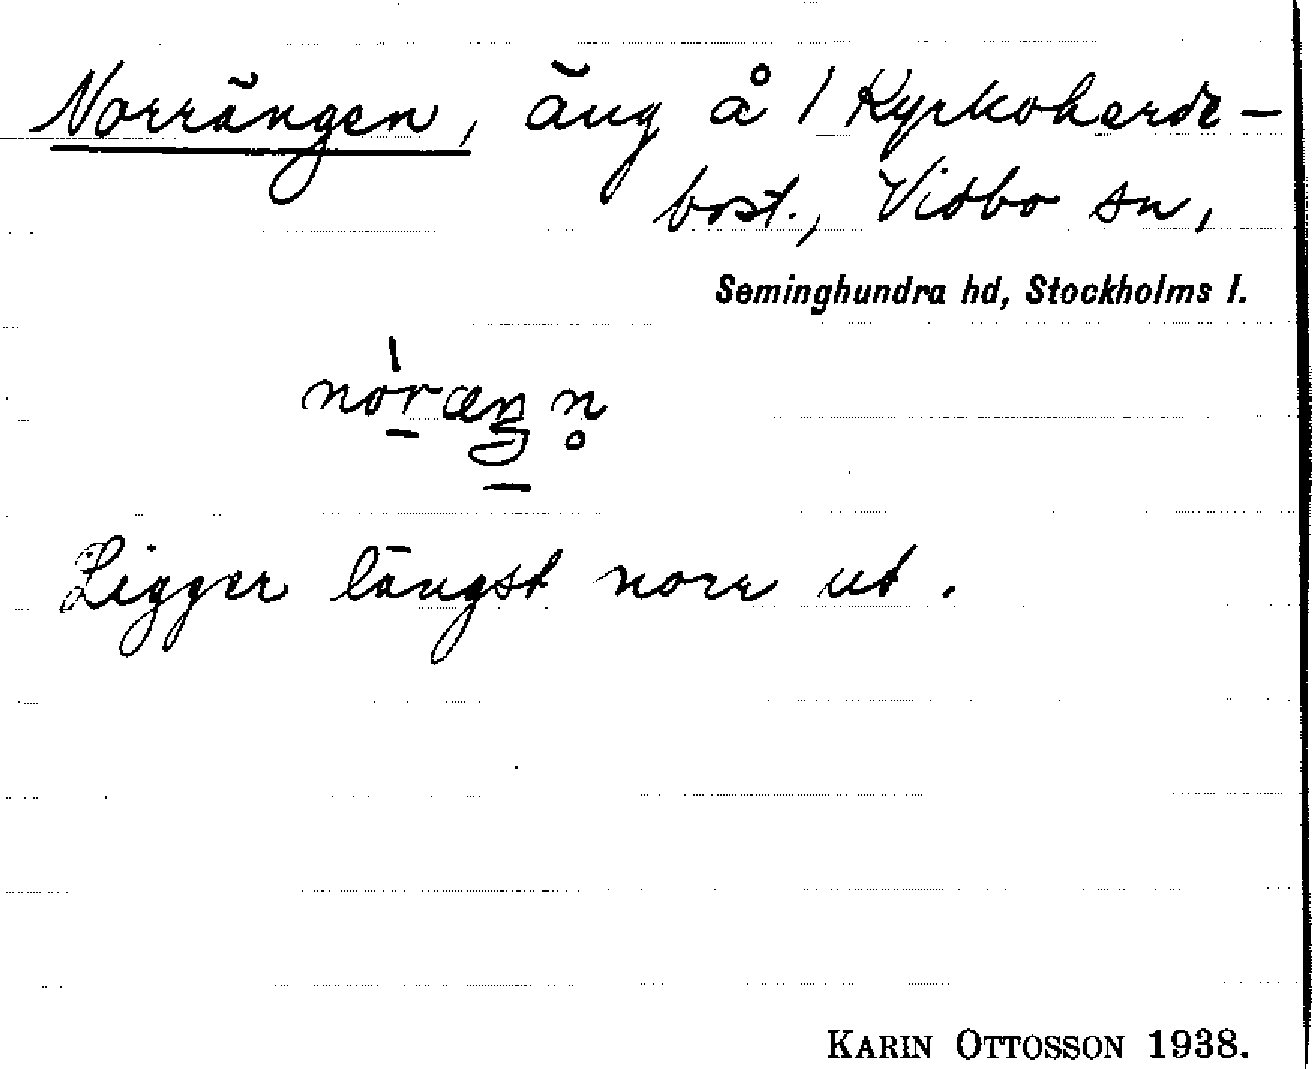 Norrängen, äng å 1 Kyrkoherde-
bost., Vidbo sn,
Seminghundra hd, Stockholms l.
Ligger längst norr ut.
KARIN OTTOSSON 1938.